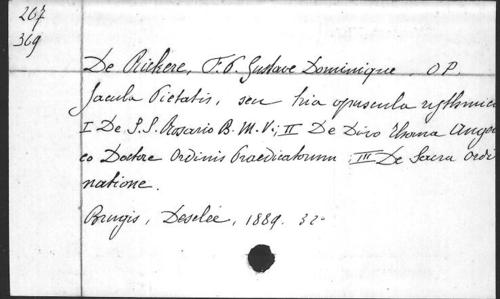 267
369
De Rickere, F. P. Gustave Dominique. O P.
Jacula Pietatis, seu tria opuscula rythmica
I De S.S. Rosario B. M. V.; II De Divo Thoma Angeli
co Doctore Ordinis Praedicatorum; III De Sacra Ordi
natione.
Brugis, Desclée, 1889. 32°